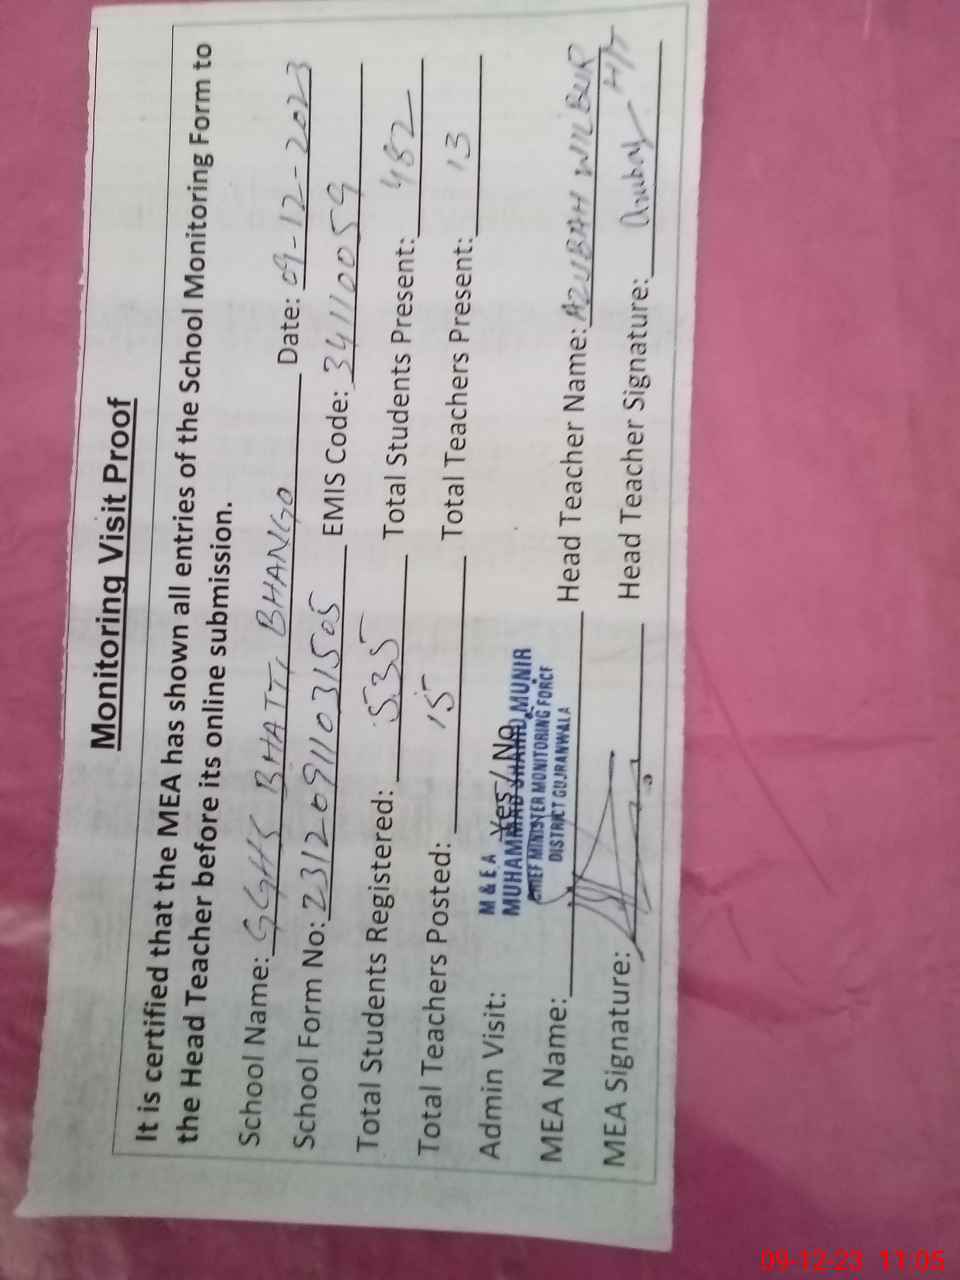 Monitoring Visit Proof
It is certified that the MEA has shown all entries of the School Monitoring Form to
the Head Teacher before its online submission.
School Name: GGHS BHATTI BHANGO Date: 09-12-2023
School Form No: 23120911031505 EMIS Code: 34110059
Total Students Registered: 535 Total Students Present: 482
Total Teachers Posted: 15 Total Teachers Present: 13
Admin Visit: Yes / No
M & E A
MUHAMMAD SHAHID MUNIR
CHIEF MINISTER MONITORING FORCE
DISTRICT GUJRANWALA
MEA Name: Head Teacher Name: AZUBAH WILBUR
MEA Signature: Head Teacher Signature:
09-12-23 11:05